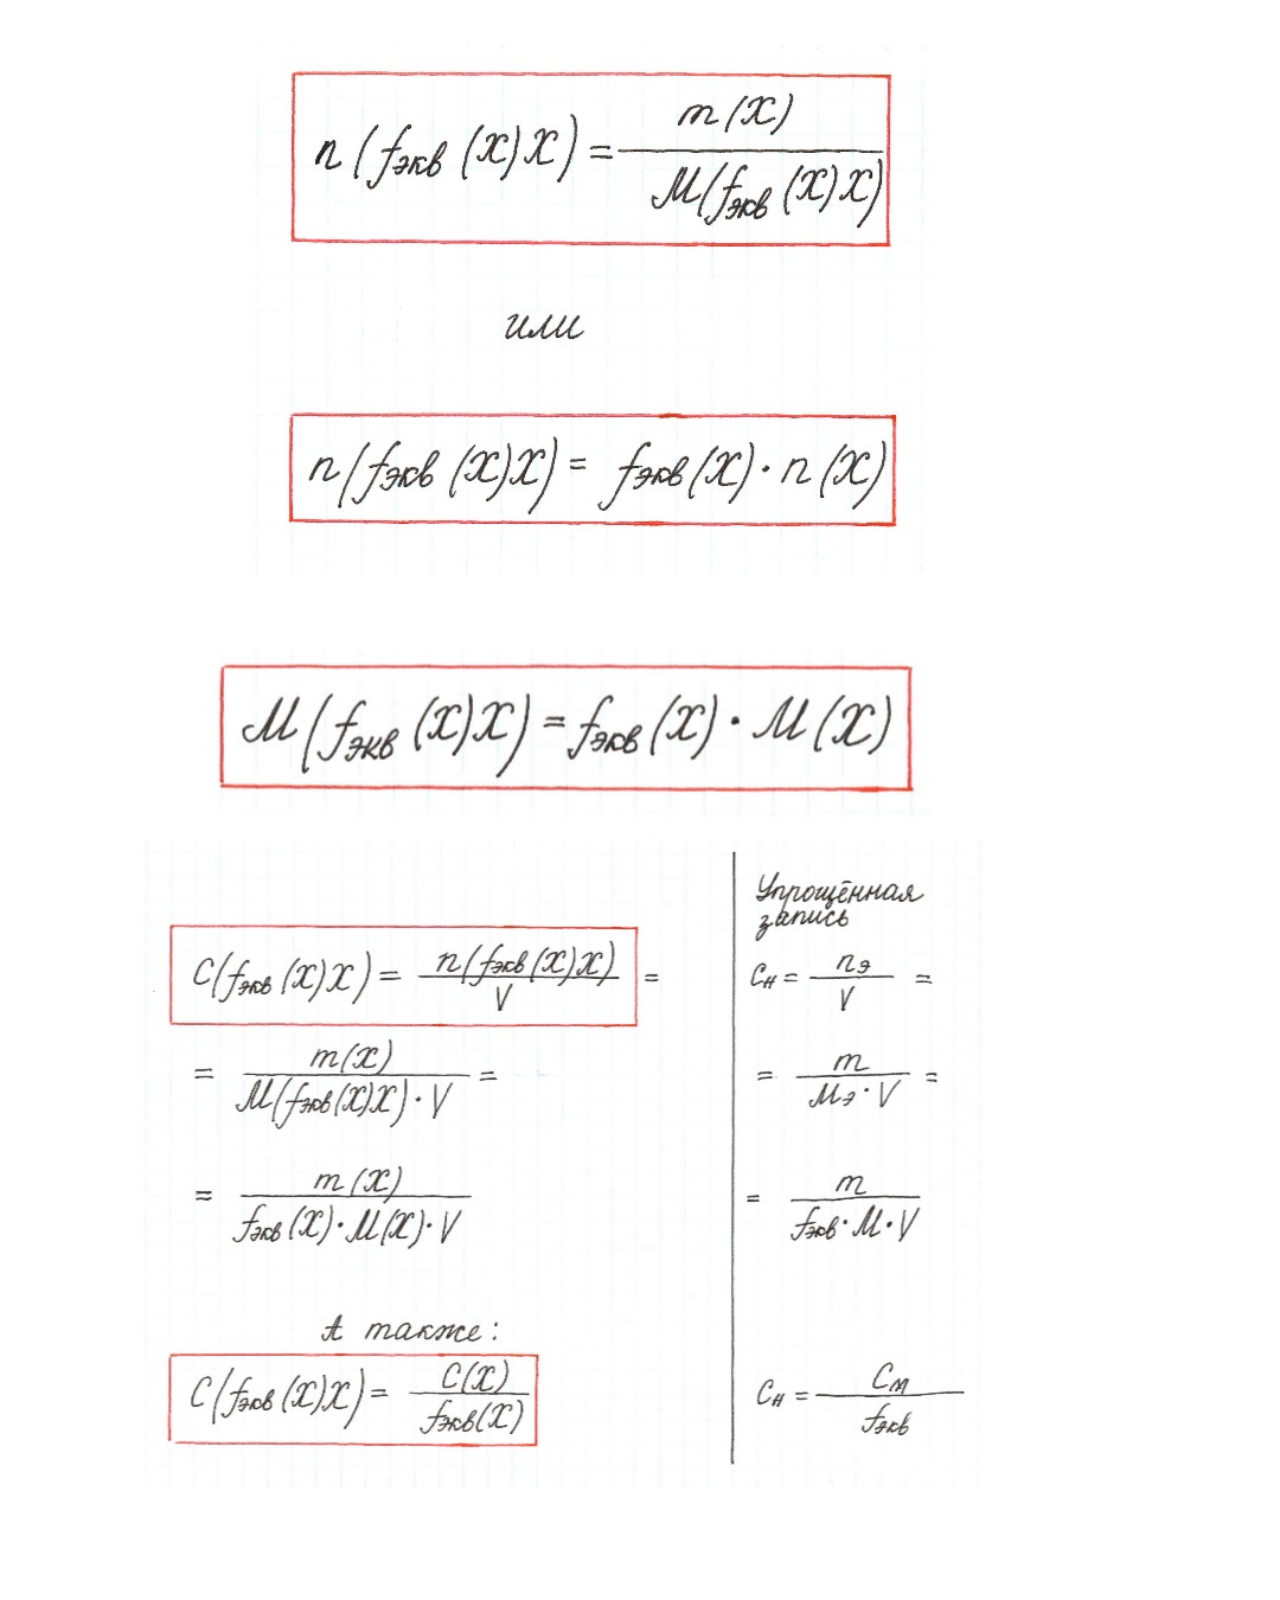 n(fэкв(X)X) = m(X) / M(fэкв(X)X)
или
n(fэкв(X)X) = fэкв(X) · n(X)
M(fэкв(X)X) = fэкв(X) · M(X)
C(fэкв(X)X) = n(fэкв(X)X) / V =
= m(X) / M(fэкв(X)X) · V =
= m(X) / fэкв(X) · M(X) · V
А также:
C(fэкв(X)X) = C(X) / fэкв(X)
Упрощённая
запись
Cн = nэ / V =
= m / Mэ · V =
= m / fэкв · M · V
Cн = Cм / fэкв